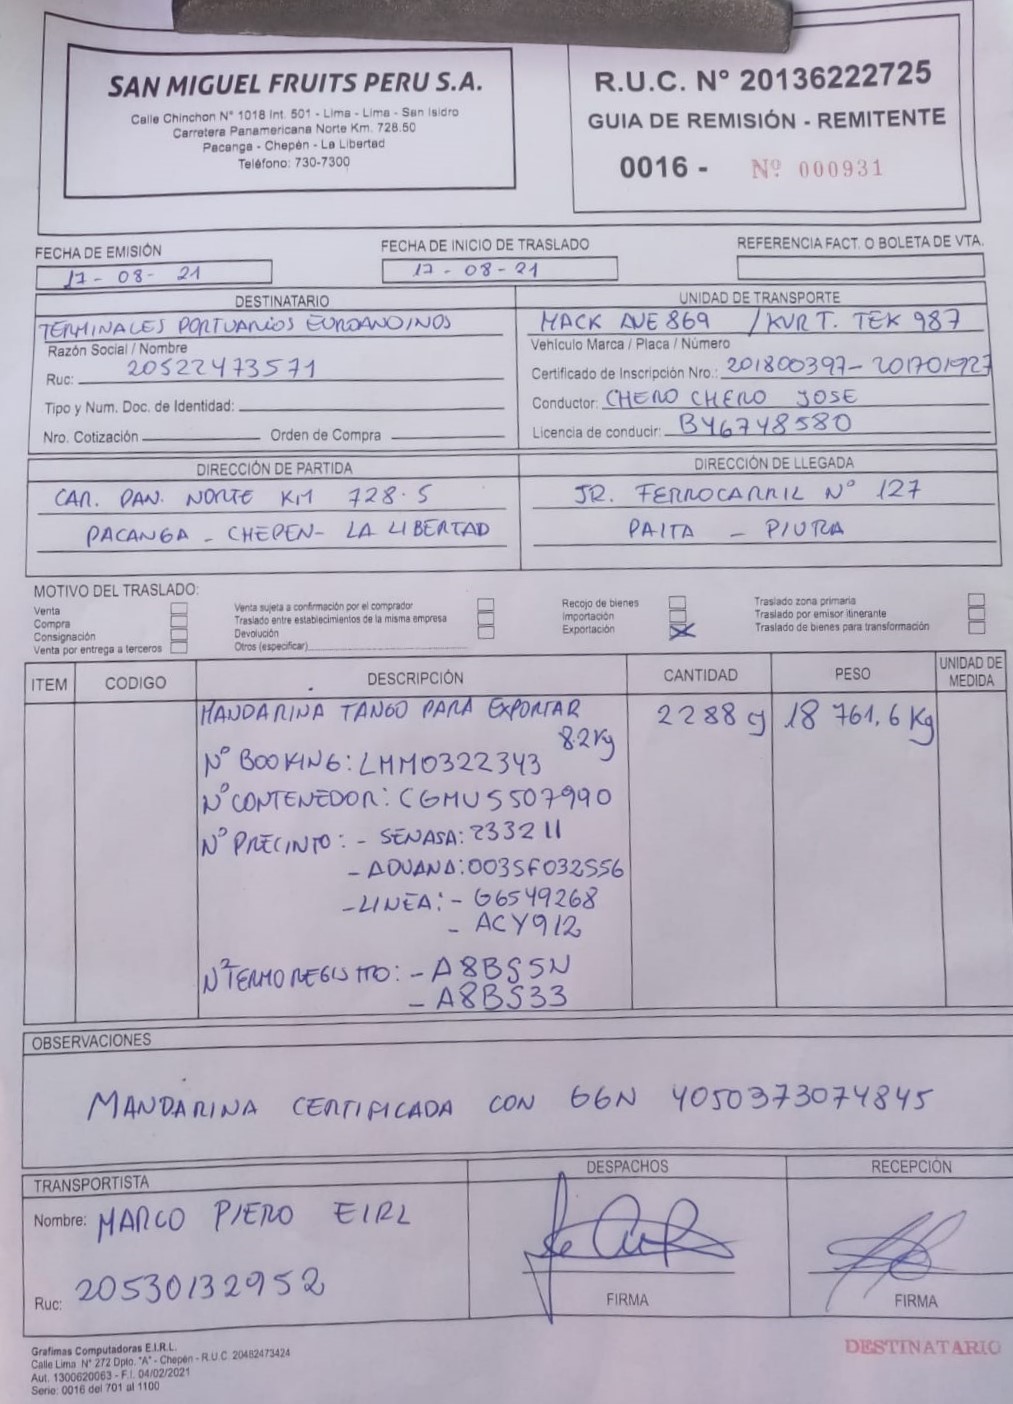 SAN MIGUEL FRUITS PERU S.A.
Calle Chinchon N° 1018 Int. 501 - Lima - Lima - San Isidro
Carretera Panamericana Norte Km. 728.50
Pacanga - Chepén - La Libertad
Teléfono: 730-7300
R.U.C. N° 20136222725
GUIA DE REMISIÓN - REMITENTE
0016 - Nº 000931
FECHA DE EMISIÓN
17 - 08 - 21
FECHA DE INICIO DE TRASLADO
17 - 08 - 21
REFERENCIA FACT. O BOLETA DE VTA.
DESTINATARIO
TERMINALES PORTUARIOS EUROANDINOS
Razón Social / Nombre
Ruc: 20522473571
Tipo y Num. Doc. de Identidad:
Nro. Cotización Orden de Compra
UNIDAD DE TRANSPORTE
MACK AVE 869 / KVRT. TEK 987
Vehículo Marca / Placa / Número
Certificado de Inscripción Nro.: 201800397 - 201701927
Conductor: CHERO CHERO JOSE
Licencia de conducir: B46748580
DIRECCIÓN DE PARTIDA
CAR. PAN. NORTE KM 728.5
PACANGA - CHEPEN - LA LIBERTAD
DIRECCIÓN DE LLEGADA
JR. FERROCARRIL N° 127
PAITA - PIURA
MOTIVO DEL TRASLADO:
Venta
Compra
Consignación
Venta por entrega a terceros
Venta sujeta a confirmación por el comprador
Traslado entre establecimientos de la misma empresa
Devolución
Otros (especificar)
Recojo de bienes
Importación
Exportación X
Traslado zona primaria
Traslado por emisor itinerante
Traslado de bienes para transformación
ITEM CODIGO DESCRIPCIÓN CANTIDAD PESO UNIDAD DE MEDIDA
MANDARINA TANGO PARA EXPORTAR 2288 cj 18 761,6 Kg
8.2 Kg
N° BOOKING: LMM0322343
N° CONTENEDOR: CGMU5507990
N° PRECINTO: - SENASA: 233211
- ADUANA: 003SF032556
- LINEA: - G6549268
- ACY912
N° TERMOREGISTRO: - A8BS5N
- A8BS33
OBSERVACIONES
MANDARINA CERTIFICADA CON GGN 4050373074845
TRANSPORTISTA
Nombre: MARCO PIERO EIRL
Ruc: 20530132952
DESPACHOS
FIRMA
RECEPCIÓN
FIRMA
Grafimas Computadoras E.I.R.L.
Calle Lima N° 272 Dpto. "A" - Chepén - R.U.C. 20482473424
Aut. 1300620063 - F.I. 04/02/2021
Serie: 0016 del 701 al 1100
DESTINATARIO